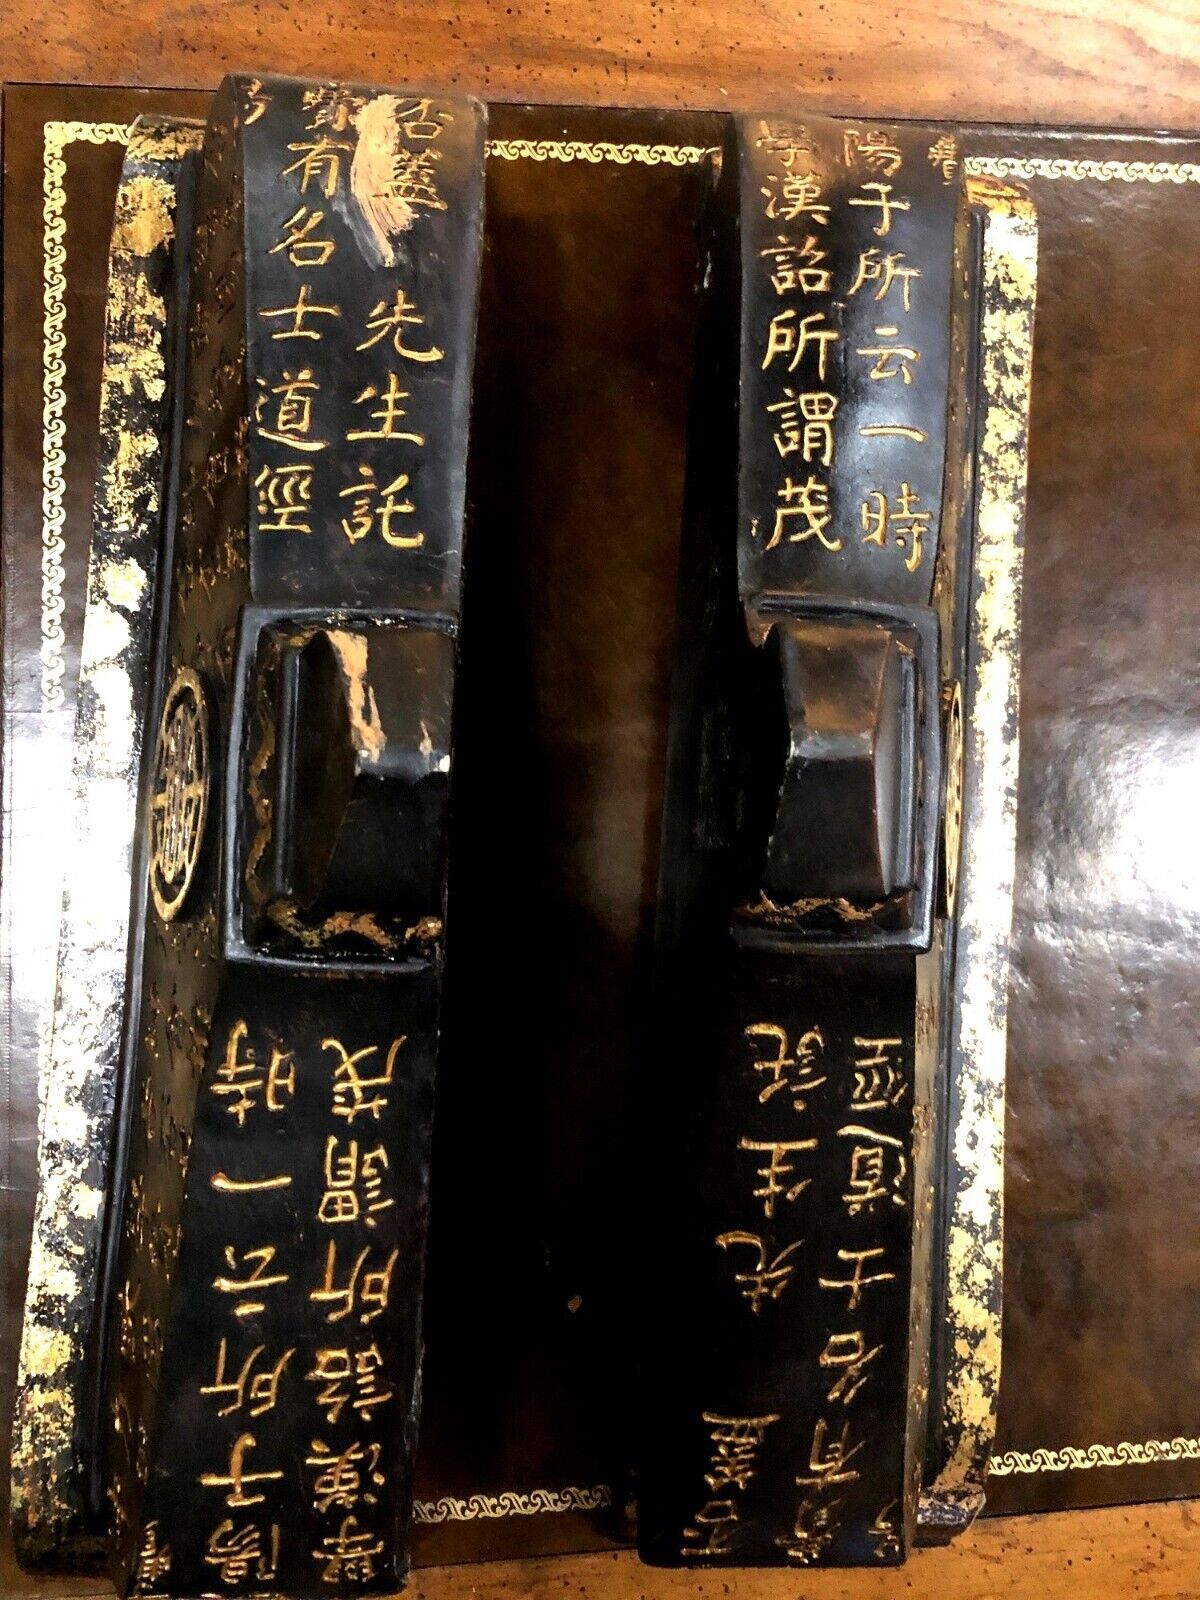 否蓋 先生託
有名士道經
陽子所云一時
學漢詔所謂茂
陽子所云一時
學漢詔所謂茂
否蓋 先生託
有名士道經